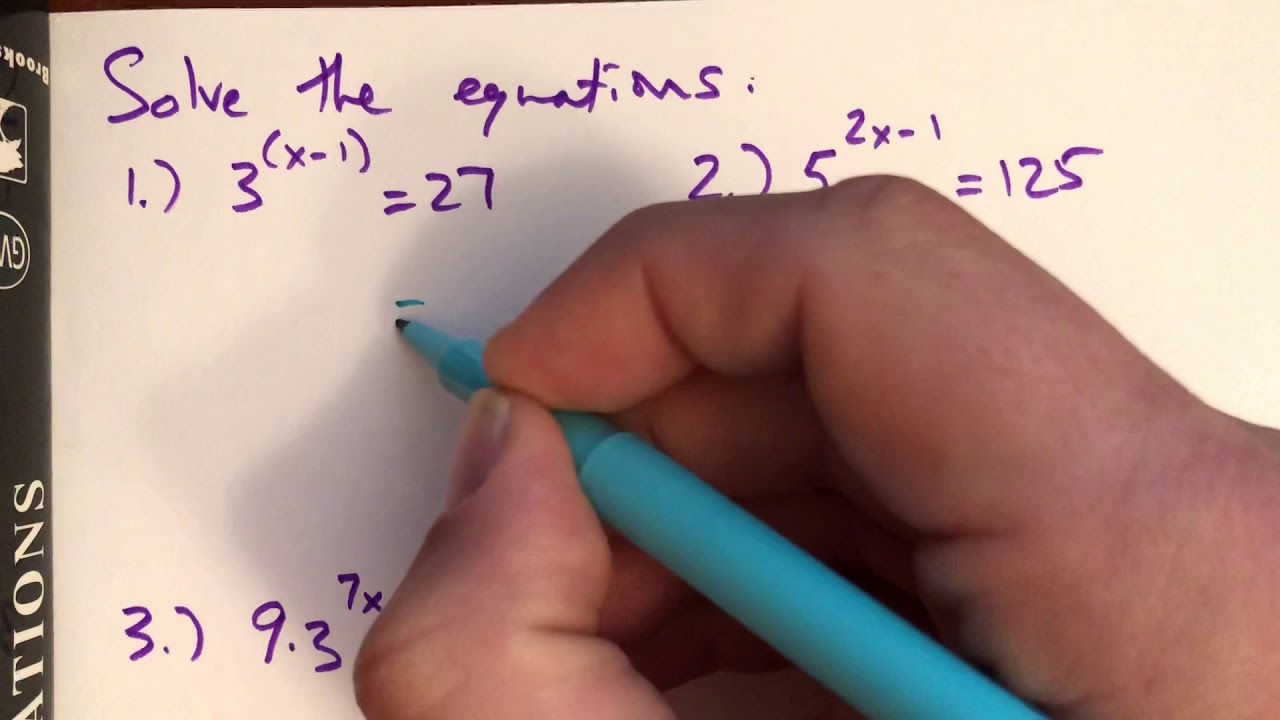 Solve the equations:
1.) 3^(x-1) = 27
2.) 5^2x-1 = 125
3.) 9.3^7x
Brooks
GV
ATIONS